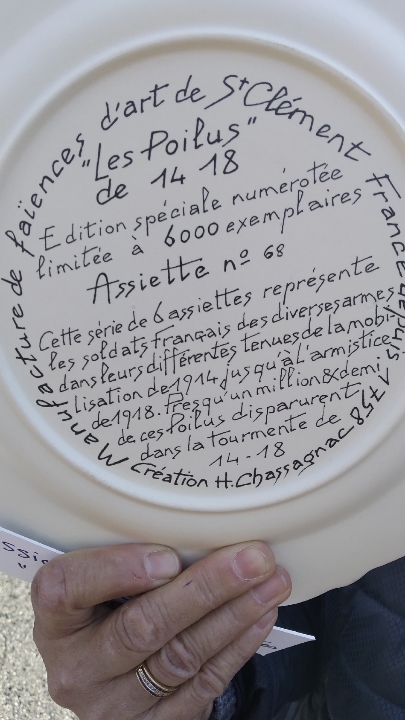 Manufacture de faïences d'art de St Clément France depuis 1758
"Les Poilus"
de 14 18
Edition spéciale numérotée
limitée à 6000 exemplaires
Assiette nº 68
Cette série de 6 assiettes représente
les soldats français des diverses armes
dans leurs différentes tenues de la mobi-
lisation de 1914 jusqu'à l'armistice
de 1918. Presqu'un million & demi
de ces Poilus disparurent
dans la tourmente de
14-18
Création H. Chassagnac